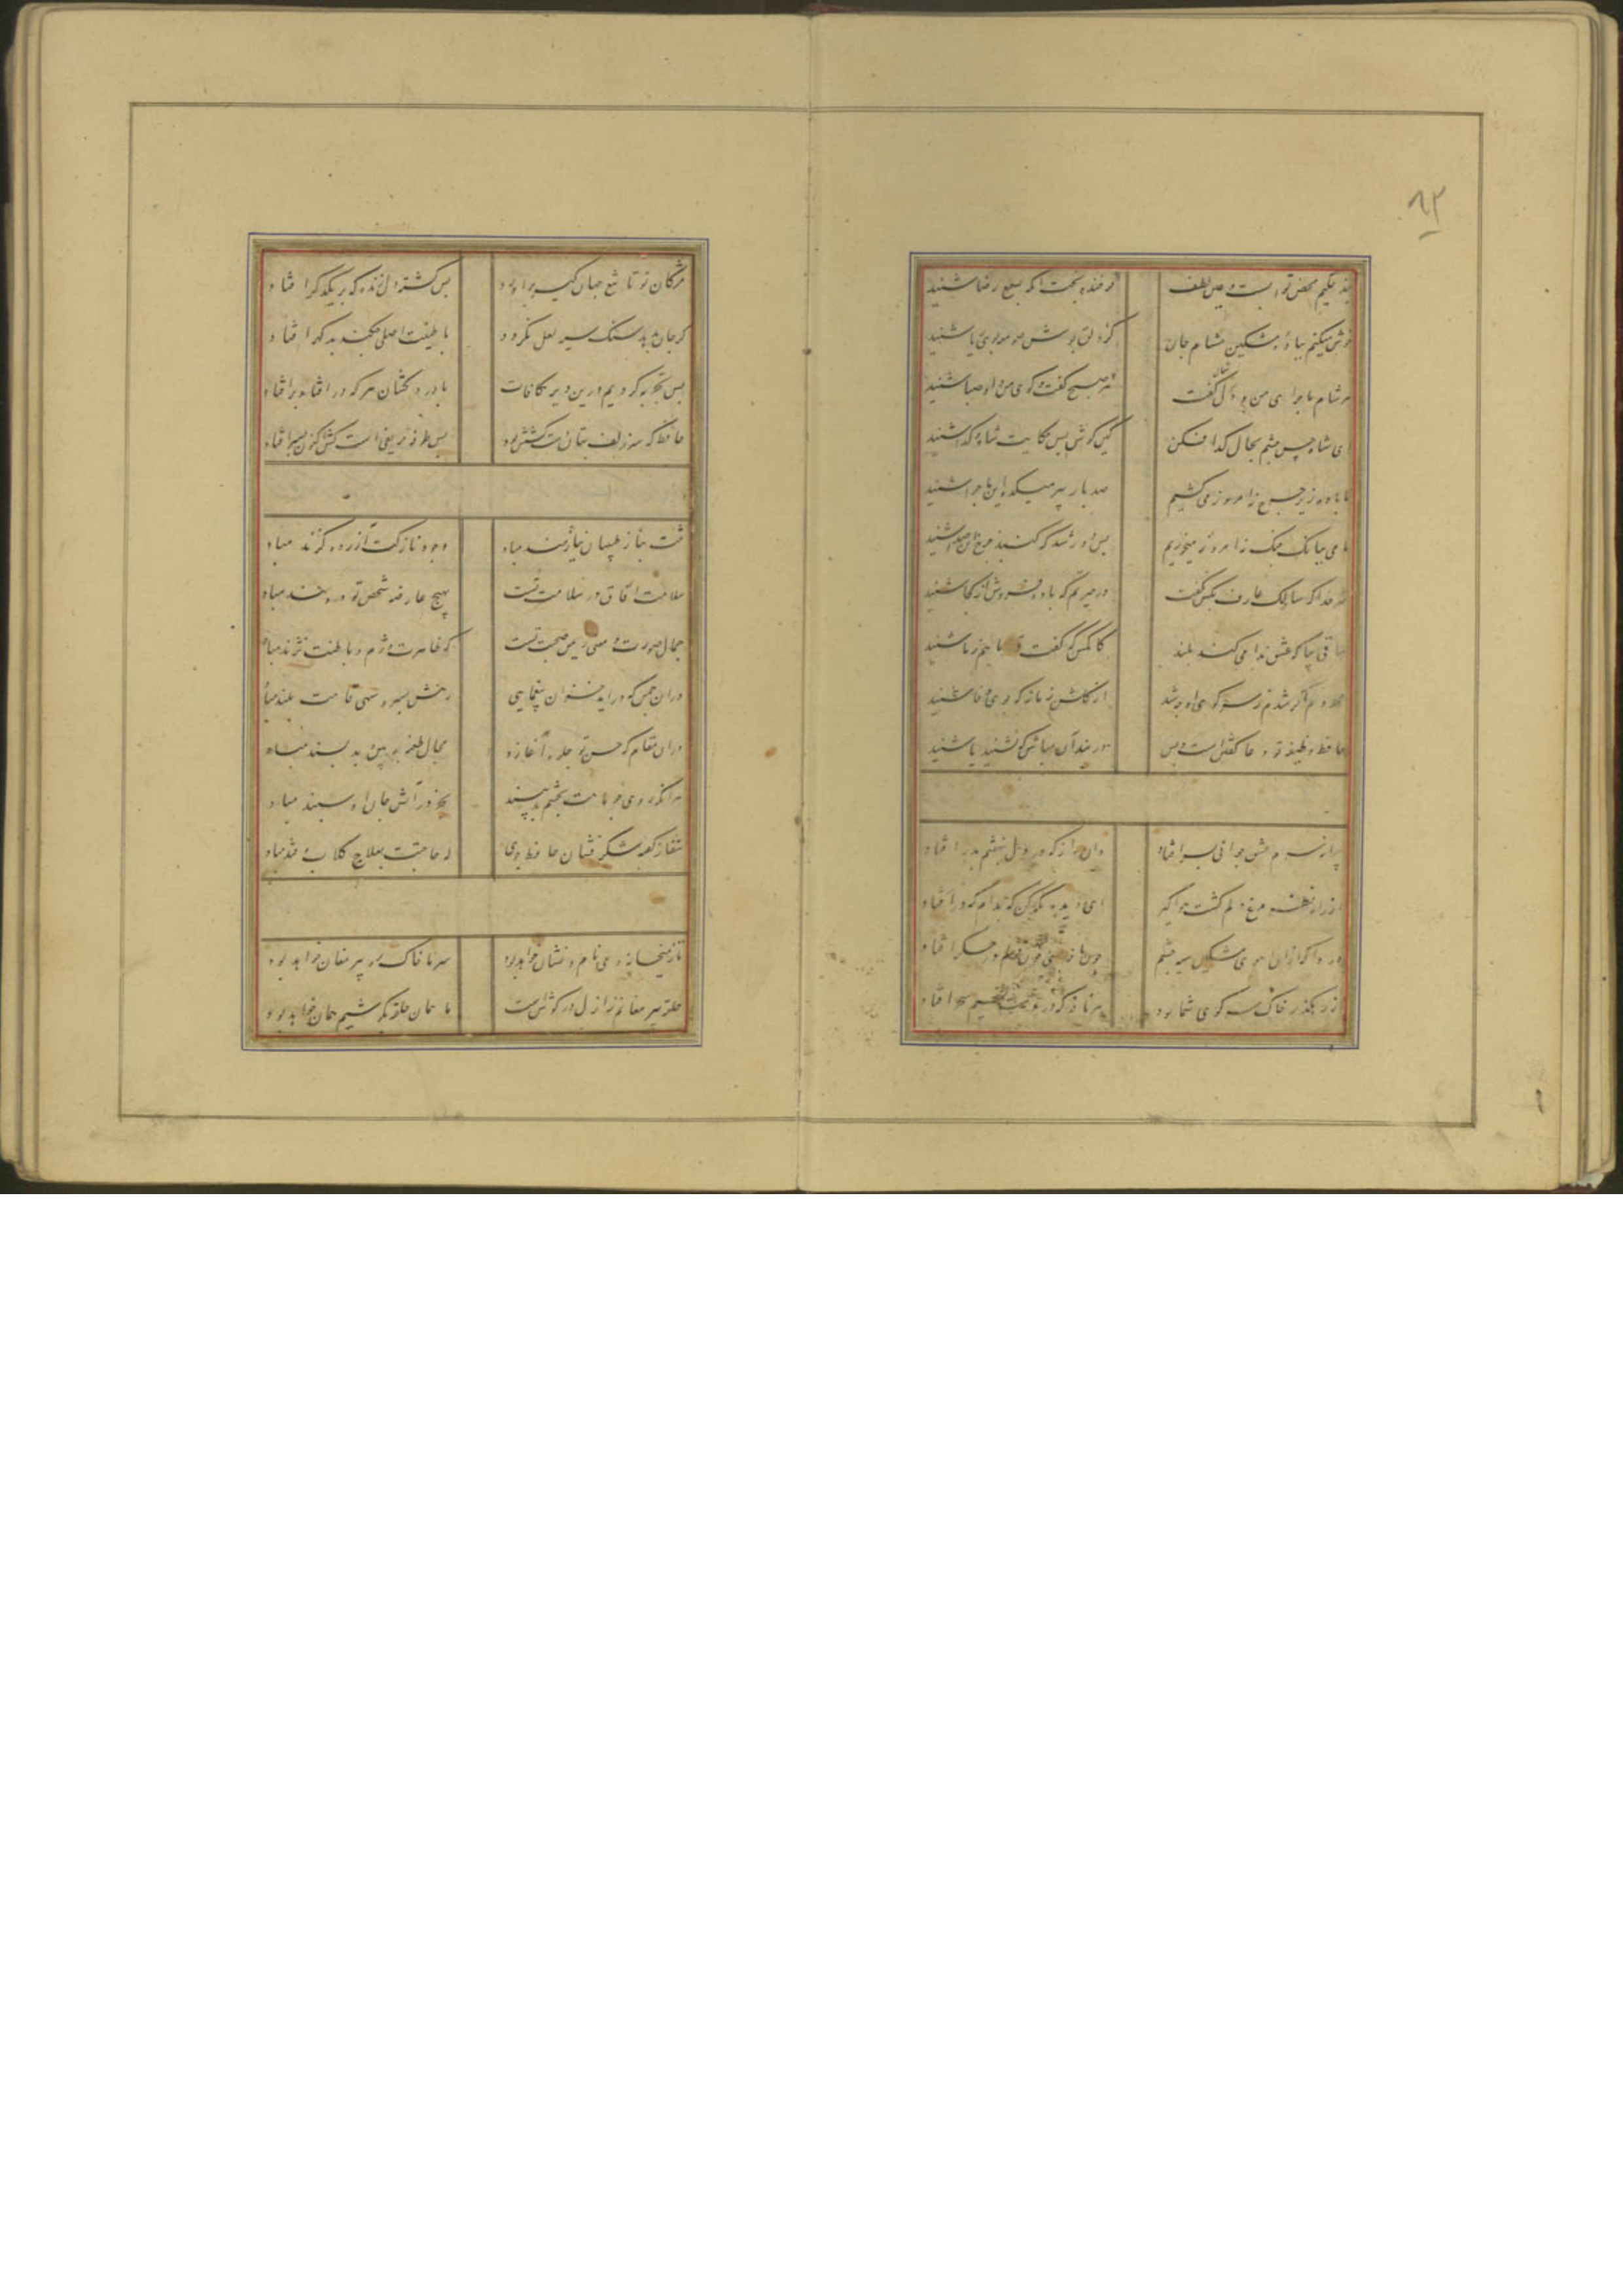 ۸۲
پند حکیم محض ثوابست و عین لطف
فرخنده بخت آنکه بسمع رضا شنید
خوش میکنم بباده مشکین مشام جان
کز دلق پوش صومعه بوی ریا شنید
هر شام ماجرای من و دل شمال گفت
هر صبح گفت و کوی من او صبا شنید
ای شاه حسن چشم بحال گدا فکن
کین کوش بس حکایت شاه و کدا شنید
ما باده زیر خرقه نه امروز می کشیم
صد بار پیر میکده این ماجرا شنید
ما می ببانک چنک نه امروز میخوریم
بس دور شد که کنبد چرخ این صدا شنید
سر خدا که سالک عارف بکس نگفت
در حیرتم که باده فروش از کجا شنید
ساقی بیا که عشق ندا می کند بلند
کانکس که گفت قصه ما هم ز ما شنید
محروم اکر شدم ز سر کوی او چه شد
از کلشن زمانه که بوی وفا شنید
حافظ وظیفه تو دعا گفتن است و بس
در بند آن مباش که نشنید یا شنید
پیرانه سرم عشق جوانی بسر افتاد
وان راز که در دل بنهفتم بدر افتاد
از راه نظر مرغ دلم کشت هوا کیر
ای دیده نکه کن که بدام که در افتاد
دردا که از ان آهوی مشکین سیه چشم
چون نافه بسی خون دلم در جکر افتاد
از رهکذر خاک سر کوی شما بود
هر نافه که در دست نسیم سحر افتاد
مژکان تو تا تیغ جهان کیر بر آورد
بس کشته دل زنده که بر یکدکر افتاد
کر جان بدهد سنک سیه لعل نکردد
با طینت اصلی چکند بد کهر افتاد
بس تجربه کردیم درین دیر مکافات
با درد کشان هر که در افتاد بر افتاد
حافظ که سر زلف بتان دست کشش بود
بس طرفه حریفی است کش اکنون بسر افتاد
تنت بناز طبیبان نیازمند مباد
وجود نازکت آزرده کزند مباد
سلامت آفاق در سلامت تست
بهیچ عارضه شخص تو دردمند مباد
جمال صورت و معنی ز یمن صحت تست
که ظاهرت دژم و باطنت نژند مباد
در ان چمن که در اید خزان بیغمایی
رهش بسرو سهی قامت بلند مباد
در ان مقام که حسن تو جلوه آغازد
مجال طعنه بدبین و بد پسند مباد
هر انکه روی چو ماهت بچشم بد بیند
بجز در آتش جان او سپند مباد
شفا ز کفته شکر فشان حافظ جوی
که حاجتت بعلاج کلاب و قند مباد
تا ز میخانه و می نام و نشان خواهد بود
سر ما خاک ره پیر مغان خواهد بود
حلقه پیر مغانم ز ازل در کوش است
ما همان حلقه بکوشیم همان خواهد بود